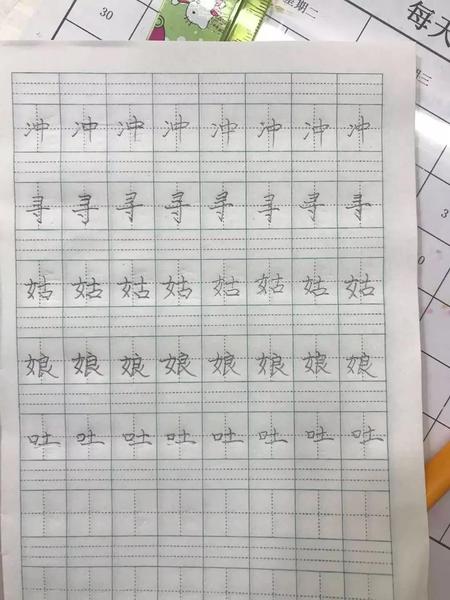 30
星期二
每天
三
3
0
冲 冲 冲 冲 冲 冲 冲 冲
寻 寻 寻 寻 寻 寻 寻 寻
姑 姑 姑 姑 姑 姑 姑 姑
娘 娘 娘 娘 娘 娘 娘 娘
吐 吐 吐 吐 吐 吐 吐 吐